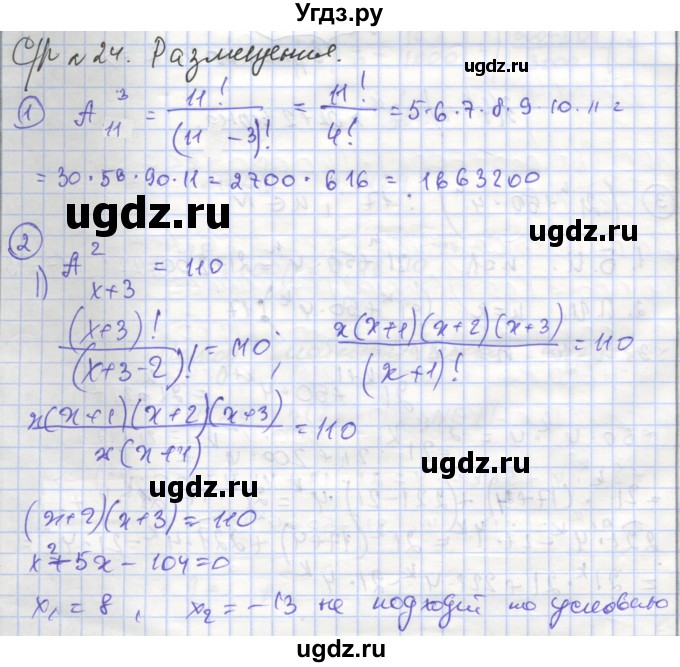 Угдз.ру
С/р № 24. Размещения.
ugdz.ru
ugdz.ru
1) A₁₁³ = 11! / (11 - 3)! = 11! / 4! = 5·6·7·8·9·10·11 =
= 30·56·90·11 = 2700·616 = 1663200
ugdz.ru
ugdz.ru
2) 1) A²ₓ₊₃ = 110
(x+3)! / (x+3-2)! = 110; x(x+1)(x+2)(x+3) / (x+1)! = 110
ugdz.ru
x(x+1)(x+2)(x+3) / x(x+1) = 110
ugdz.ru
ugdz.ru
(x+2)(x+3) = 110
x²+5x - 104=0
x₁ = 8, x₂ = -13 не подходит по условию
ugdz.ru
ugdz.ru